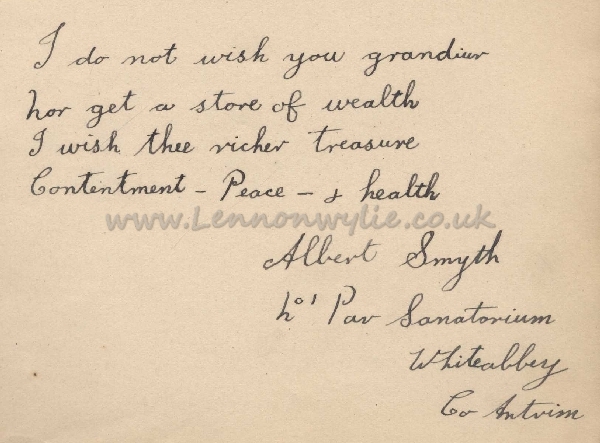 I do not wish you grandiur
nor get a store of wealth
I wish thee richer treasure
Contentment - Peace - & health
www.Lennonwylie.co.uk
Albert Smyth
No 1 Pav Sanatorium
Whiteabbey
Co Antrim